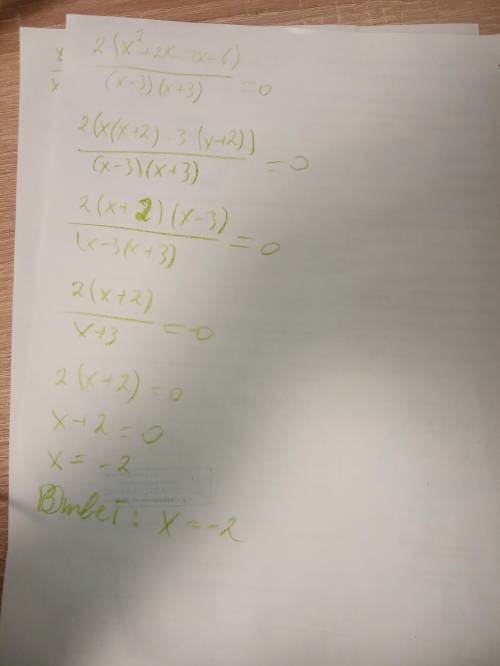 2(x²+2x-3x-6)
(x-3)(x+3) =0
2(x(x+2)-3(x+2))
(x-3)(x+3) =0
2(x+2)(x-3)
(x-3(x+3) =0
2(x+2)
x+3 =0
2(x+2)=0
x+2=0
x=-2
Ответ: x=-2